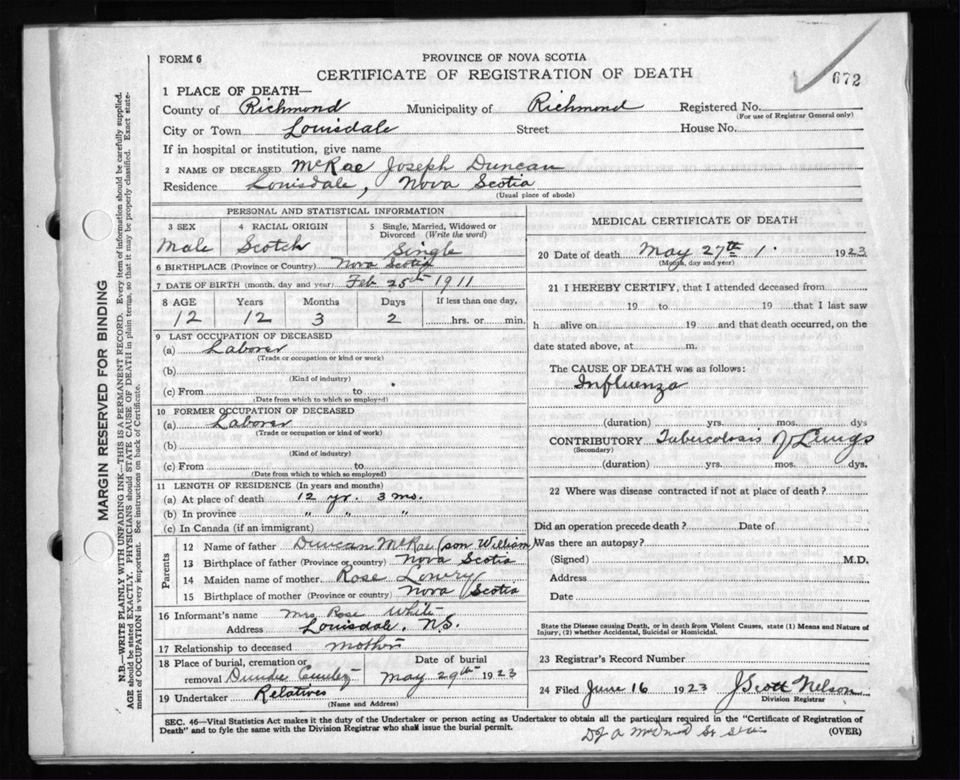 FORM 6
PROVINCE OF NOVA SCOTIA
CERTIFICATE OF REGISTRATION OF DEATH
672
1 PLACE OF DEATH—
County of Richmond Municipality of Richmond Registered No.
(For use of Registrar General only)
City or Town Louisdale Street House No.
If in hospital or institution, give name
2 NAME OF DECEASED McRae Joseph Duncan
Residence Louisdale, Nova Scotia
(Usual place of abode)
PERSONAL AND STATISTICAL INFORMATION
3 SEX 4 RACIAL ORIGIN 5 Single, Married, Widowed or Divorced (Write the word)
Male Scotch Single
6 BIRTHPLACE (Province or Country) Nova Scotia
7 DATE OF BIRTH (month, day and year) Feb 25th 1911
8 AGE Years Months Days If less than one day,
12 12 3 2 hrs. or min.
9 LAST OCCUPATION OF DECEASED
(a) Laborer
(Trade or occupation or kind or work)
(b)
(Kind of industry)
(c) From to
(Date from which to which so employed)
10 FORMER OCCUPATION OF DECEASED
(a) Laborer
(Trade or occupation or kind or work)
(b)
(Kind of industry)
(c) From to
(Date from which to which so employed)
11 LENGTH OF RESIDENCE (In years and months)
(a) At place of death 12 yr. 3 mo.
(b) In province " " "
(c) In Canada (if an immigrant)
Parents
12 Name of father Duncan McRae (son William)
13 Birthplace of father (Province or country) Nova Scotia
14 Maiden name of mother Rose Lowry
15 Birthplace of mother (Province or country) Nova Scotia
16 Informant's name Mrs Rose White
Address Louisdale, N.S.
17 Relationship to deceased mother
18 Place of burial, cremation or removal Date of burial
Dundee May 29th 1923
19 Undertaker Relatives
(Name and Address)
MEDICAL CERTIFICATE OF DEATH
20 Date of death May 27th 1923
(Month, day and year)
21 I HEREBY CERTIFY, that I attended deceased from
19 to 19 that I last saw
h alive on 19 and that death occurred, on the
date stated above, at m.
The CAUSE OF DEATH was as follows:
Influenza
(duration) yrs. mos. dys
CONTRIBUTORY Tubercolosis of Lungs
(Secondary)
(duration) yrs. mos. dys.
22 Where was disease contracted if not at place of death?
Did an operation precede death? Date of
Was there an autopsy?
(Signed) M.D.
Address
Date
State the Disease causing Death, or in death from Violent Causes, state (1) Means and Nature of
Injury, (2) whether Accidental, Suicidal or Homicidal.
23 Registrar's Record Number
24 Filed June 16 1923 J Scott Nelson
Division Registrar
SEC. 46—Vital Statistics Act makes it the duty of the Undertaker or person acting as Undertaker to obtain all the particulars required in the "Certificate of Registration of
Death" and to fyle the same with the Division Registrar who shall issue the burial permit.
(OVER)
MARGIN RESERVED FOR BINDING
N.B.—WRITE PLAINLY WITH UNFADING INK—THIS IS A PERMANENT RECORD. Every item of information should be carefully supplied.
AGE should be stated EXACTLY. PHYSICIANS should STATE CAUSE OF DEATH in plain terms, so that it may be properly classified. Exact state-
ment of OCCUPATION is very important. See instructions on back of Certificate.